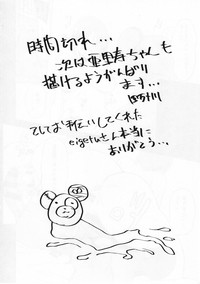 時間切れ…
次は亜里寿ちゃんも
描けるようがんばり
ます…
てしお手伝いしてくれた
eigetuさん本当に
ありがとう…